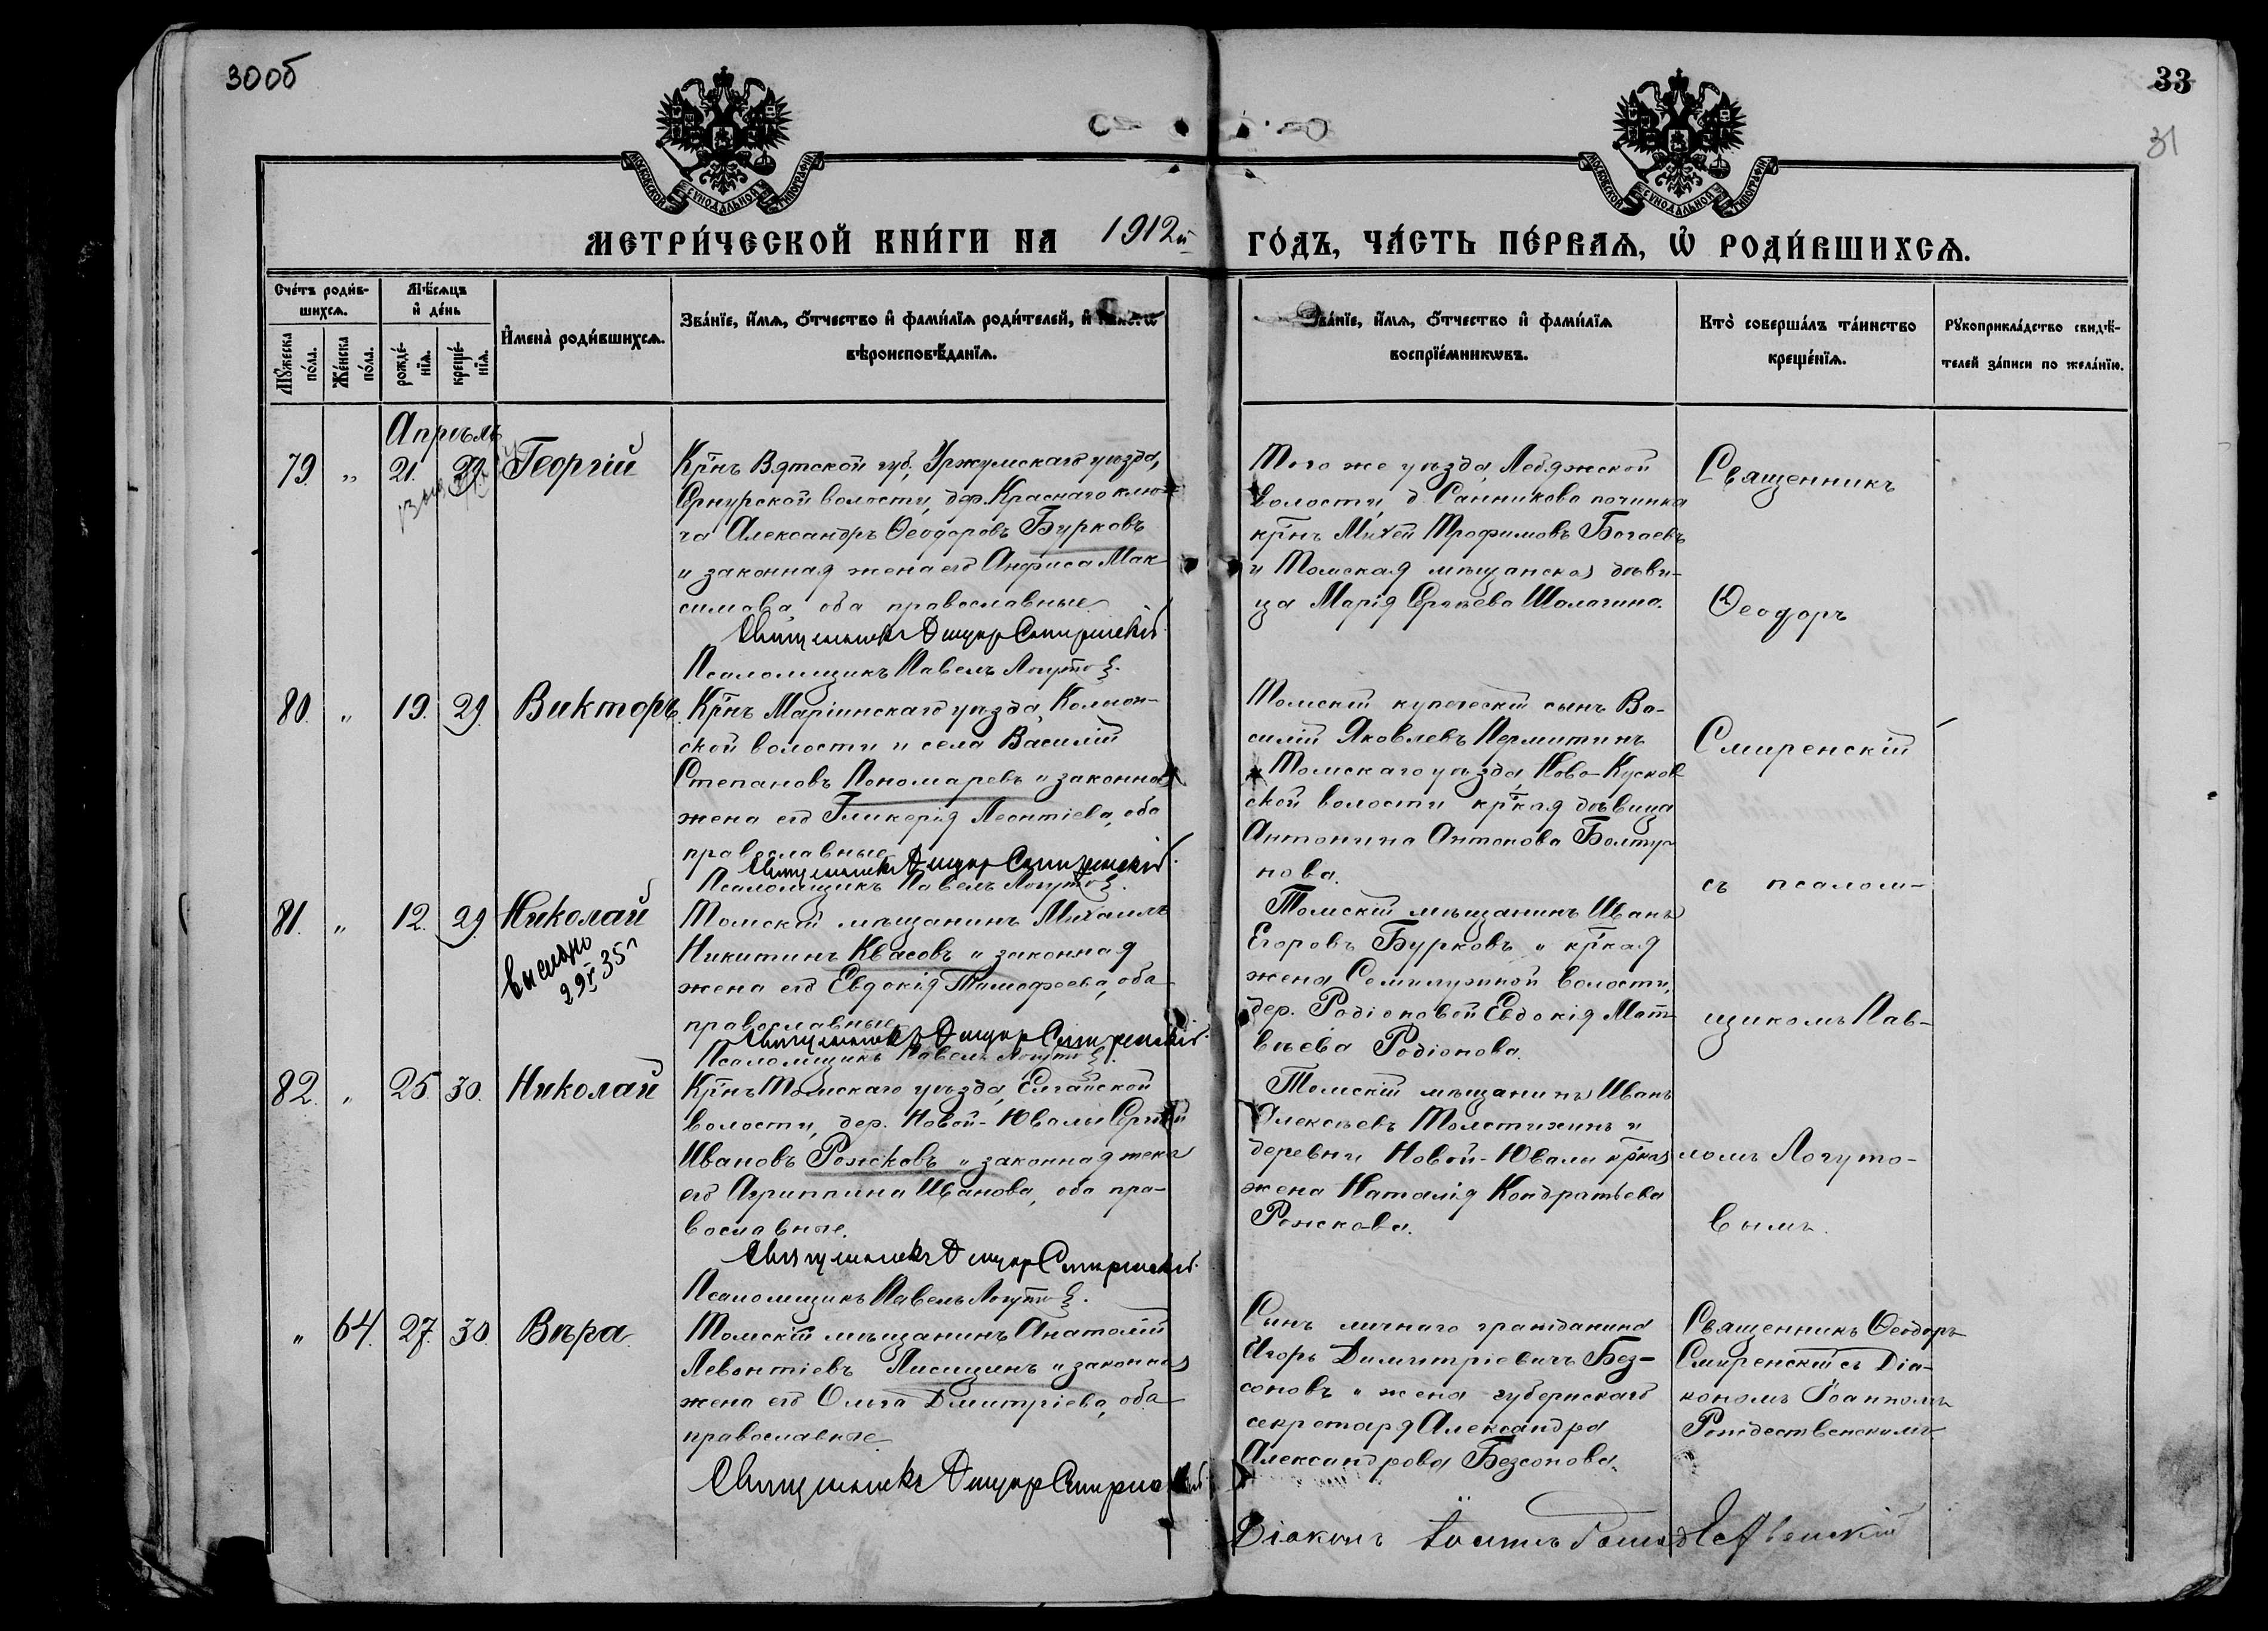 30об
33
31
МОСКОВСКОЙ СѴНОДАЛЬНОЙ ТИПОГРАФІИ
МОСКОВСКОЙ СѴНОДАЛЬНОЙ ТИПОГРАФІИ
МЕТРИ́ЧЕСКОЙ КНИ́ГИ НА 1912й ГО́ДЪ, ЧА́СТЬ ПЕ́РВАѦ, Ѡ҆ РОДИ́ВШИХСѦ.
Сче́тъ роди́в-
шихсѧ.
Мꙋ́жеска по́ла.
Же́нска по́ла.
Мѣ́сѧцъ
и҆ де́нь
рожде́-
нїѧ.
креще́-
нїѧ.
И҆мена̀ роди́вшихсѧ.
Зва́нїе, и҆́мѧ, ѻ҆́тчество и҆ фами́лїѧ роди́телей, и҆
вѣроисповѣ́данїѧ.
Зва́нїе, и҆́мѧ, ѻ҆́тчество и҆ фами́лїѧ
воспрїе́мникѡвъ.
Кто̀ соверша́лъ та́инство
креще́нїѧ.
Рꙋкоприкла́дство свидѣ́-
телей за́писи по жела́нїю.
Апрѣль
79. „ 21. 29. Георгій
Кр̅нъ Вятской губ., Уржумскаго уѣзда,
Сернурской волости, дер. Краснаго клю-
ча Александръ Ѳеодоровъ Бурковъ
и законная жена его Анфиса Мак
симова, оба православные
Священникъ Ѳеодоръ Смиренскій.
Псаломщикъ Павелъ Логутовъ.
Того же уѣзда, Лебяжской
волости, д. Санникова починка
кр̅нъ Михей Трофимовъ Богаевъ
и Томская мѣщанская дѣви-
ца Марія Сергѣева Шалагина.
Священникъ
Ѳеодоръ
80. „ 19. 29. Викторъ
Кр̅нъ Маріинскаго уѣзда, Колион-
ской волости и села Василій
Степановъ Пономаревъ и законная
жена его Гликерія Леонтіева, оба
православные
Священникъ Ѳеодоръ Смиренскій.
Псаломщикъ Павелъ Логутовъ.
Томскій купеческій сынъ Ва-
силій Яковлевъ Пермитинъ
и Томскаго уѣзда, Ново-Кусков
ской волости кр̅кая дѣвица
Антонина Антонова Болту-
нова.
Смиренскій
съ псалом-
81. „ 12. 29. Николай
выслано
29/V 35 г
Томскій мѣщанинъ Михаилъ
Никитинъ Квасовъ и законная
жена его Евдокія Тимофеева, оба
православные
Священникъ Ѳеодоръ Смиренскій.
Псаломщикъ Павелъ Логутовъ.
Томскій мѣщанинъ Иванъ
Егоровъ Бурковъ и кр̅кая
жена Семилужной волости,
дер. Родіоновой Евдокія Мат-
вѣева Родіонова.
щикомъ Пав-
82. „ 25. 30. Николай
Кр̅нъ Томскаго уѣзда, Елгайской
волости, дер. Новой-Ювалы Сергѣй
Ивановъ Рожковъ и законная жена
его Агриппина Иванова, оба пра-
вославные.
Священникъ Ѳеодоръ Смиренскій.
Псаломщикъ Павелъ Логутовъ.
Томскій мѣщанинъ Иванъ
Алексѣевъ Толстихинъ и
деревни Новой-Ювалы кр̅кая
жена Наталія Кондратьева
Рожкова.
ломъ Логуто-
вымъ.
„ 64. 27. 30. Вѣра.
Томскій мѣщанинъ Анатолій
Левонтіевъ Лисицинъ и законная
жена его Ольга Димитріева, оба
православные.
Священникъ Ѳеодоръ Смиренскій.
Сынъ личнаго гражданина
Игорь Димитріевичъ Без-
соновъ и жена губернскаго
секретаря Александра
Александрова Безсонова.
Священникъ Ѳеодоръ
Смиренскій съ Діа-
кономъ Іоанномъ
Рождественскимъ
Діаконъ Іоаннъ Рождественскій